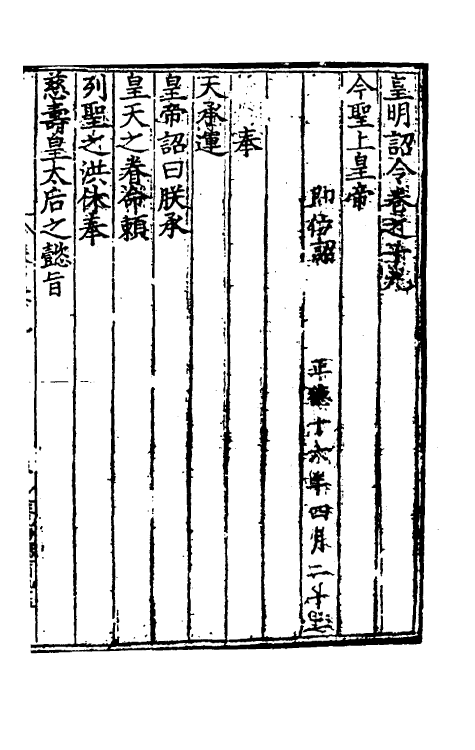 皇明詔令卷之十九
今聖上皇帝
即位詔 正德十六年四月二十
奉
天承運
皇帝詔曰朕承
皇天之眷命賴
列聖之洪休奉
慈壽皇太后之懿旨